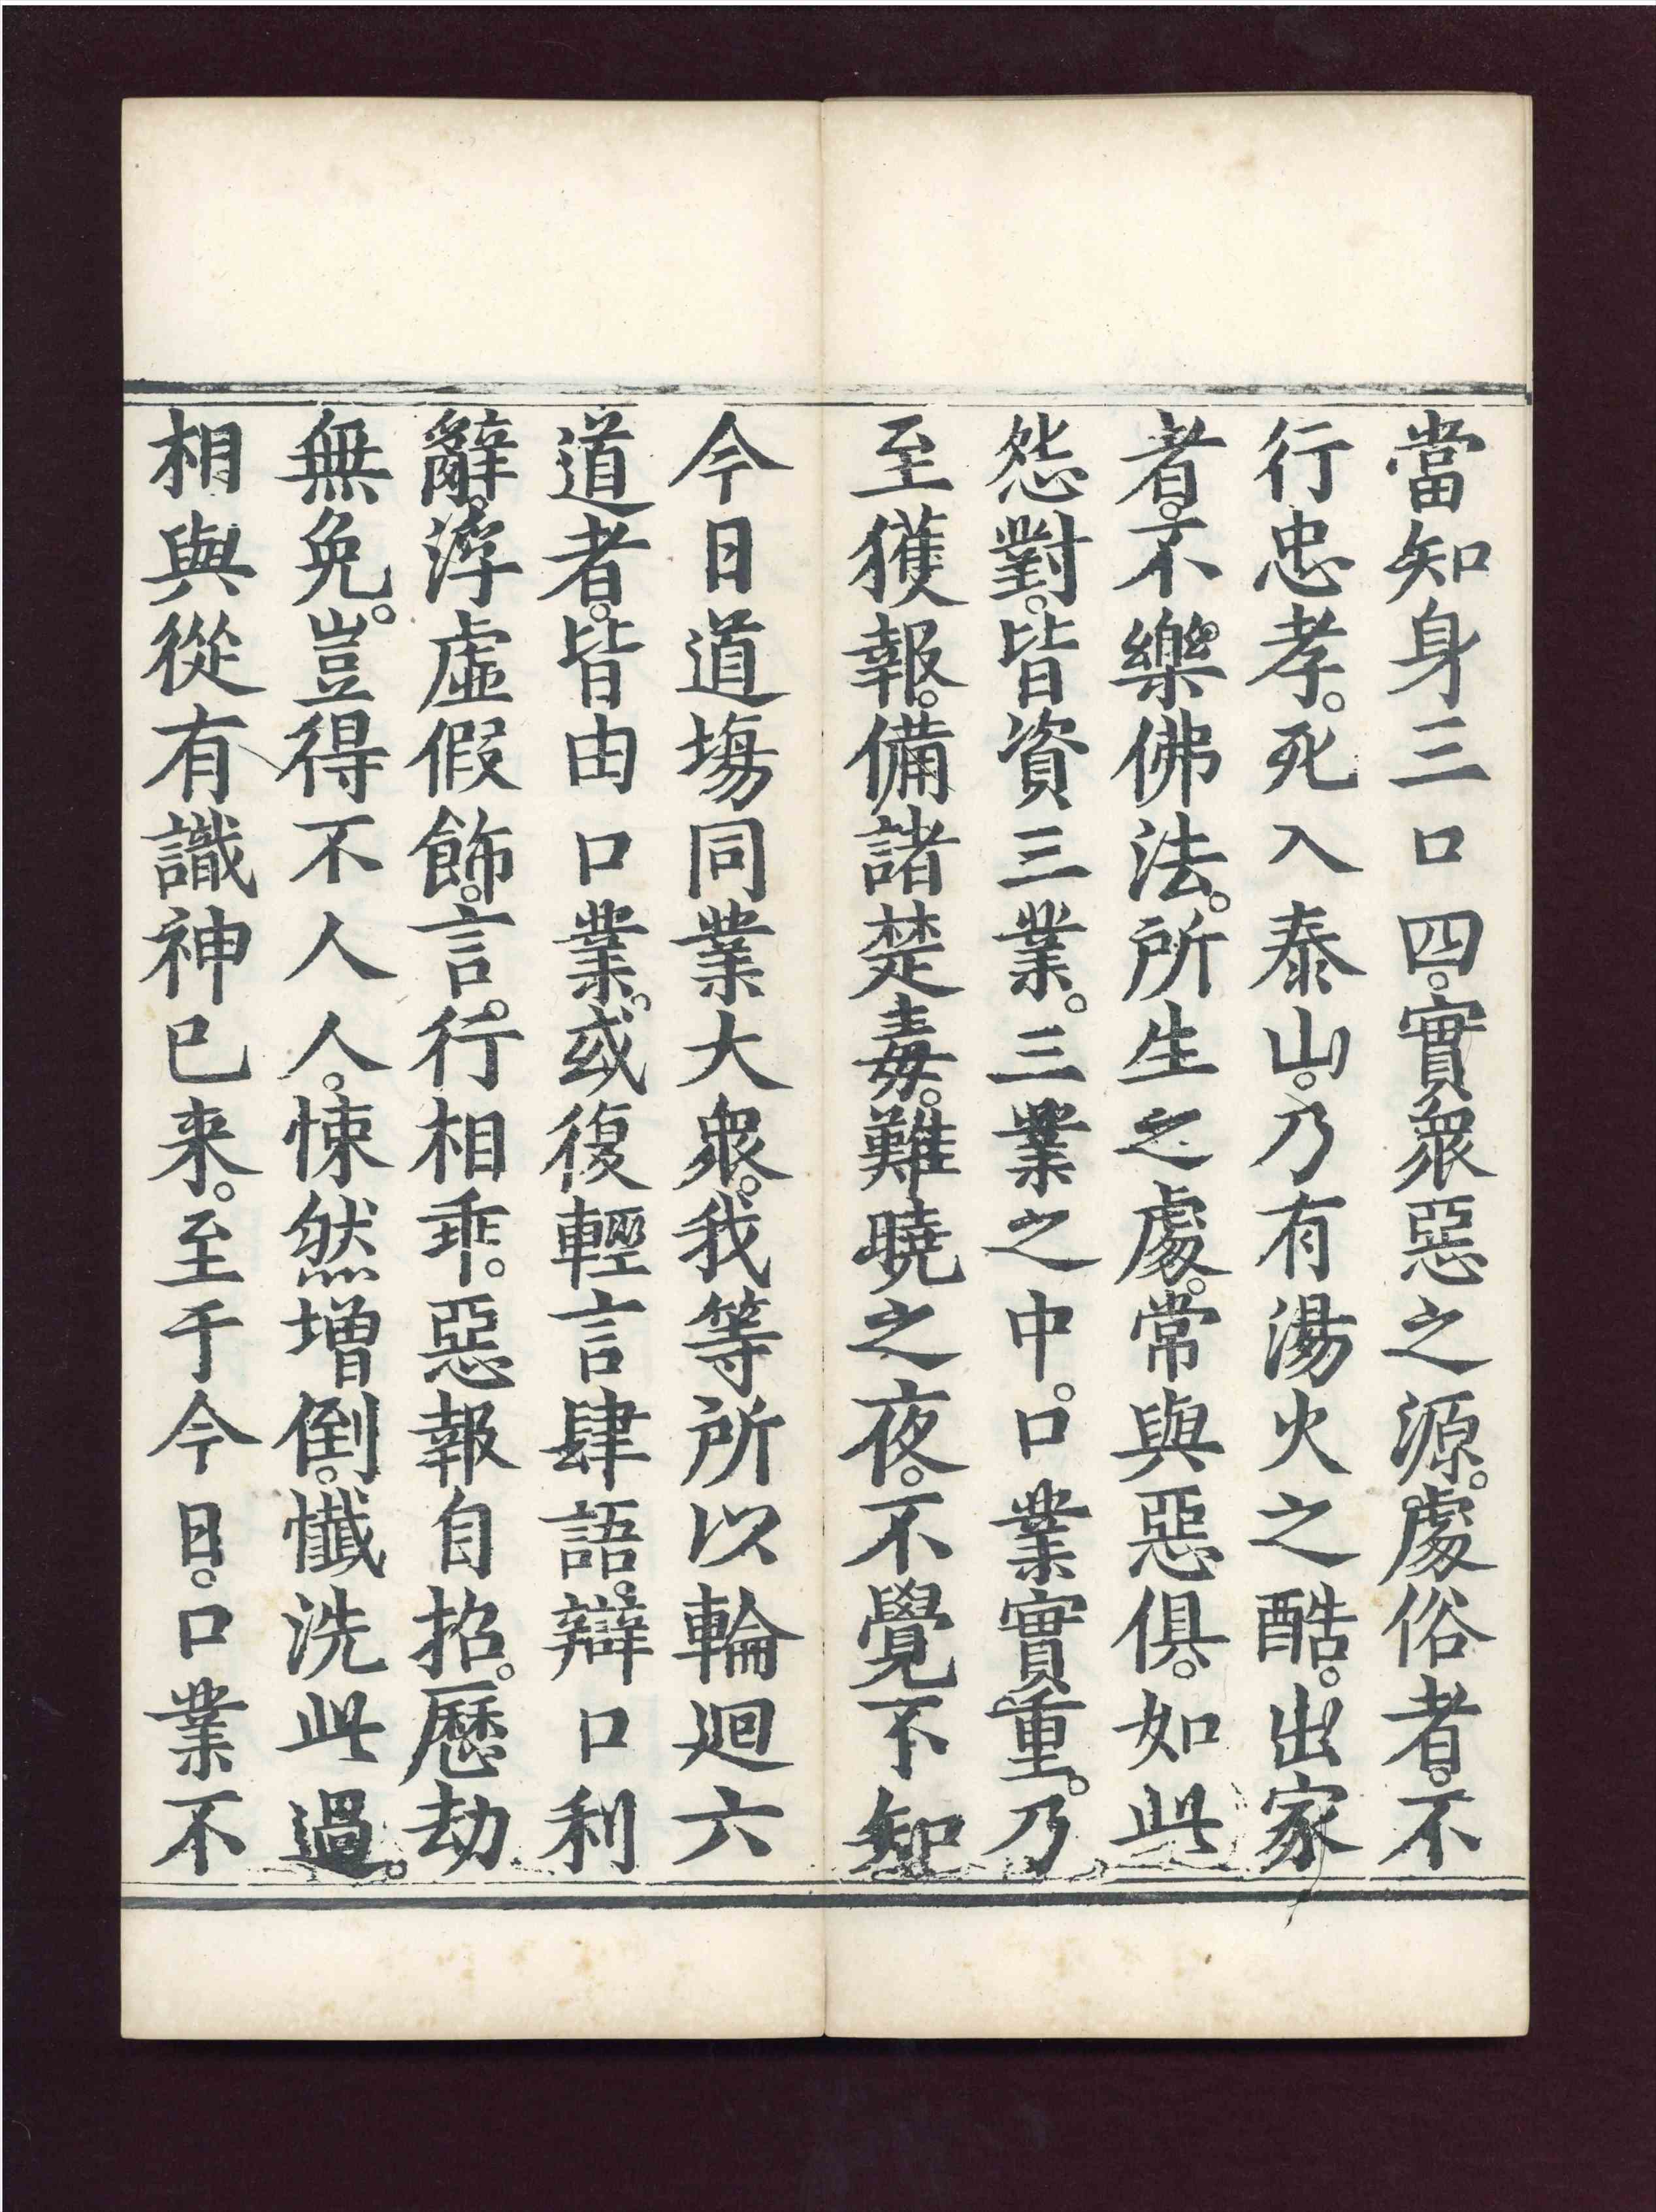 當知身三口四。實衆惡之源。處俗者。不
行忠孝。死入泰山。乃有湯火之酷。出家
者。不樂佛法。所生之處。常與惡俱。如此
怨對。皆資三業。三業之中。口業實重。乃
至獲報。備諸楚毒。難曉之夜。不覺不知
今日道塲同業大衆。我等所以輪迴六
道者。皆由口業。或復輕言肆語。辯口利
辭。浮虛假飾。言行相乖。惡報自招。歷劫
無免。豈得不人人。悚然増倒。懺洗此過。
相與從有識神已来。至于今日。口業不